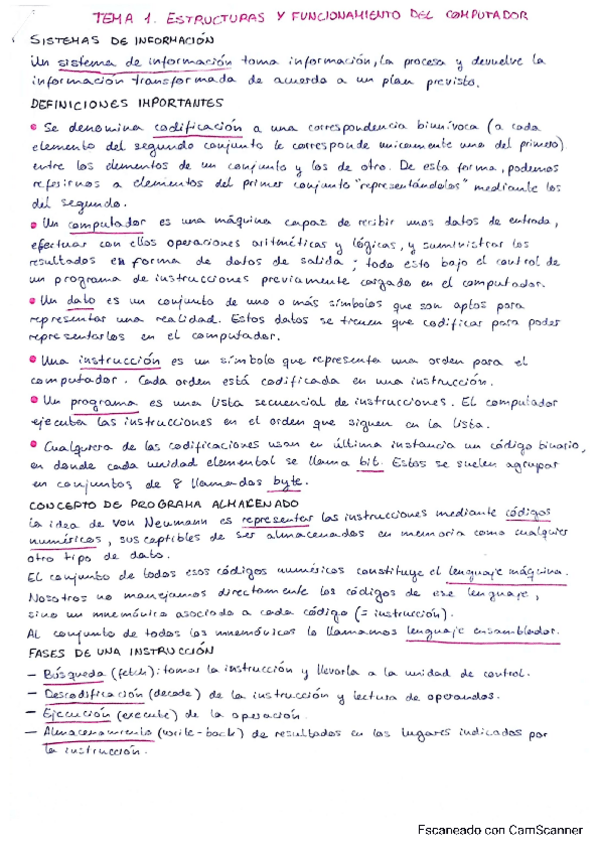 TEMA 1. ESTRUCTURAS Y FUNCIONAMIENTO DEL COMPUTADOR
SISTEMAS DE INFORMACIÓN
Un sistema de información toma información, la procesa y devuelve la
información transformada de acuerdo a un plan previsto.
DEFINICIONES IMPORTANTES
• Se denomina codificación a una correspondencia biunívoca (a cada
elemento del segundo conjunto le corresponde unicamente uno del primero)
entre los elementos de un conjunto y los de otro. De esta forma, podemos
referirnos a elementos del primer conjunto "representándolos" mediante los
del segundo.
• Un computador es una máquina capaz de recibir unos datos de entrada,
efectuar con ellos operaciones aritméticas y lógicas, y suministrar los
resultados en forma de datos de salida; todo esto bajo el control de
un programa de instrucciones previamente cargado en el computador.
• Un dato es un conjunto de uno o más símbolos que son aptos para
representar una realidad. Estos datos se tienen que codificar para poder
representarlos en el computador.
• Una instrucción es un símbolo que representa una orden para el
computador. Cada orden está codificada en una instrucción.
• Un programa es una lista secuencial de instrucciones. El computador
ejecuta las instrucciones en el orden que siguen en la lista.
• Cualquiera de las codificaciones usan en última instancia un código binario,
en donde cada unidad elemental se llama bit. Estos se suelen agrupar
en conjuntos de 8 llamados byte.
CONCEPTO DE PROGRAMA ALMACENADO
La idea de Von Neumann es representar las instrucciones mediante códigos
numéricos, susceptibles de ser almacenados en memoria como cualquier
otro tipo de dato.
El conjunto de todos esos códigos numéricos constituye el lenguaje máquina.
Nosotros no manejamos directamente los códigos de ese lenguaje,
sino un mnemónico asociado a cada código (= instrucción).
Al conjunto de todos los mnemónicos lo llamamos lenguaje ensamblador.
FASES DE UNA INSTRUCCIÓN
— Búsqueda (fetch): tomar la instrucción y llevarla a la unidad de control.
— Descodificación (decode) de la instrucción y lectura de operandos.
— Ejecución (execute) de la operación.
— Almacenamiento (write-back) de resultados en los lugares indicados por
la instrucción.
Escaneado con CamScanner